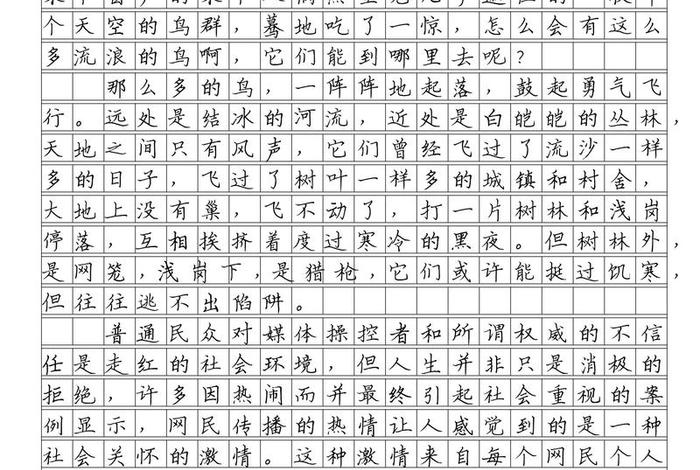 个天空的鸟群，蓦地吃了一惊，怎么会有这么
多流浪的鸟啊，它们能到哪里去呢？
那么多的鸟，一阵阵地起落，鼓起勇气飞
行。远处是结冰的河流，近处是白皑皑的丛林，
天地之间只有风声，它们曾经飞过了流沙一样
多的日子，飞过了树叶一样多的城镇和村舍，
大地上没有巢，飞不动了，打一片树林和浅岗
停落，互相挨挤着度过寒冷的黑夜。但树林外，
是网笼，浅岗下，是猎枪，它们或许能挺过饥寒，
但往往逃不出陷阱。
普通民众对媒体操控者和所谓权威的不信
任是走红的社会环境，但人生并非只是消极的
拒绝，许多因热闹而并最终引起社会重视的案
例显示，网民传播的热情让人感觉到的是一种
社会关怀的激情。这种激情来自每个网民个人